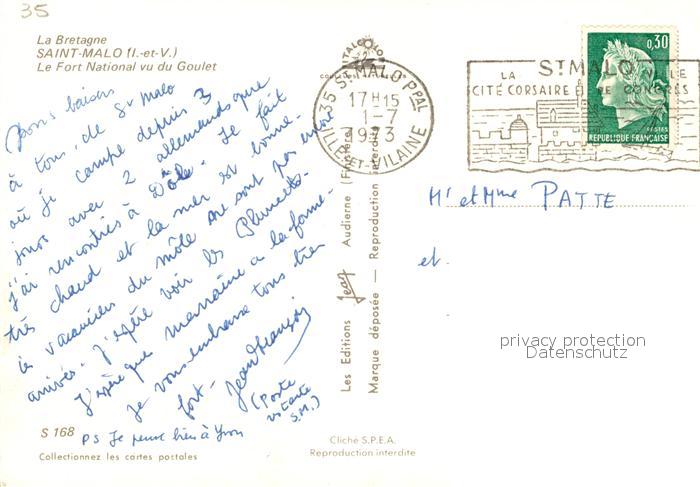 35
La Bretagne
SAINT-MALO (I.-et-V.)
Le Fort National vu du Goulet
Bons baisers
à tous, de St Malo
où je campe depuis 3
jours avec 2 allemands que
j'ai rencontrés à Dôle. Il fait
très chaud et la mer est bonne.
les vacanciers du môle ne sont pas encore
arrivés. J'espère voir les
J'espère que marraine a la forme.
Je vous embrasse tous très
fort. Jean François
(Poste
restante
S.M.)
PS Je pense bien à Yvon
S 168
Collectionnez les cartes postales
Les Editions Jean Audierne (Finistère)
Marque déposée — Reproduction interdite
Cliché S.P.E.A.
Reproduction interdite
35 ST MALO PPAL
17 H 15
1-7
1973
ILLE-ET-VILAINE
ST MALO
LA VILLE
CITÉ CORSAIRE ET DE CONGRÈS
0,30
POSTES
REPUBLIQUE FRANÇAISE
Mr et Mme PATTE
et
privacy protection
Datenschutz